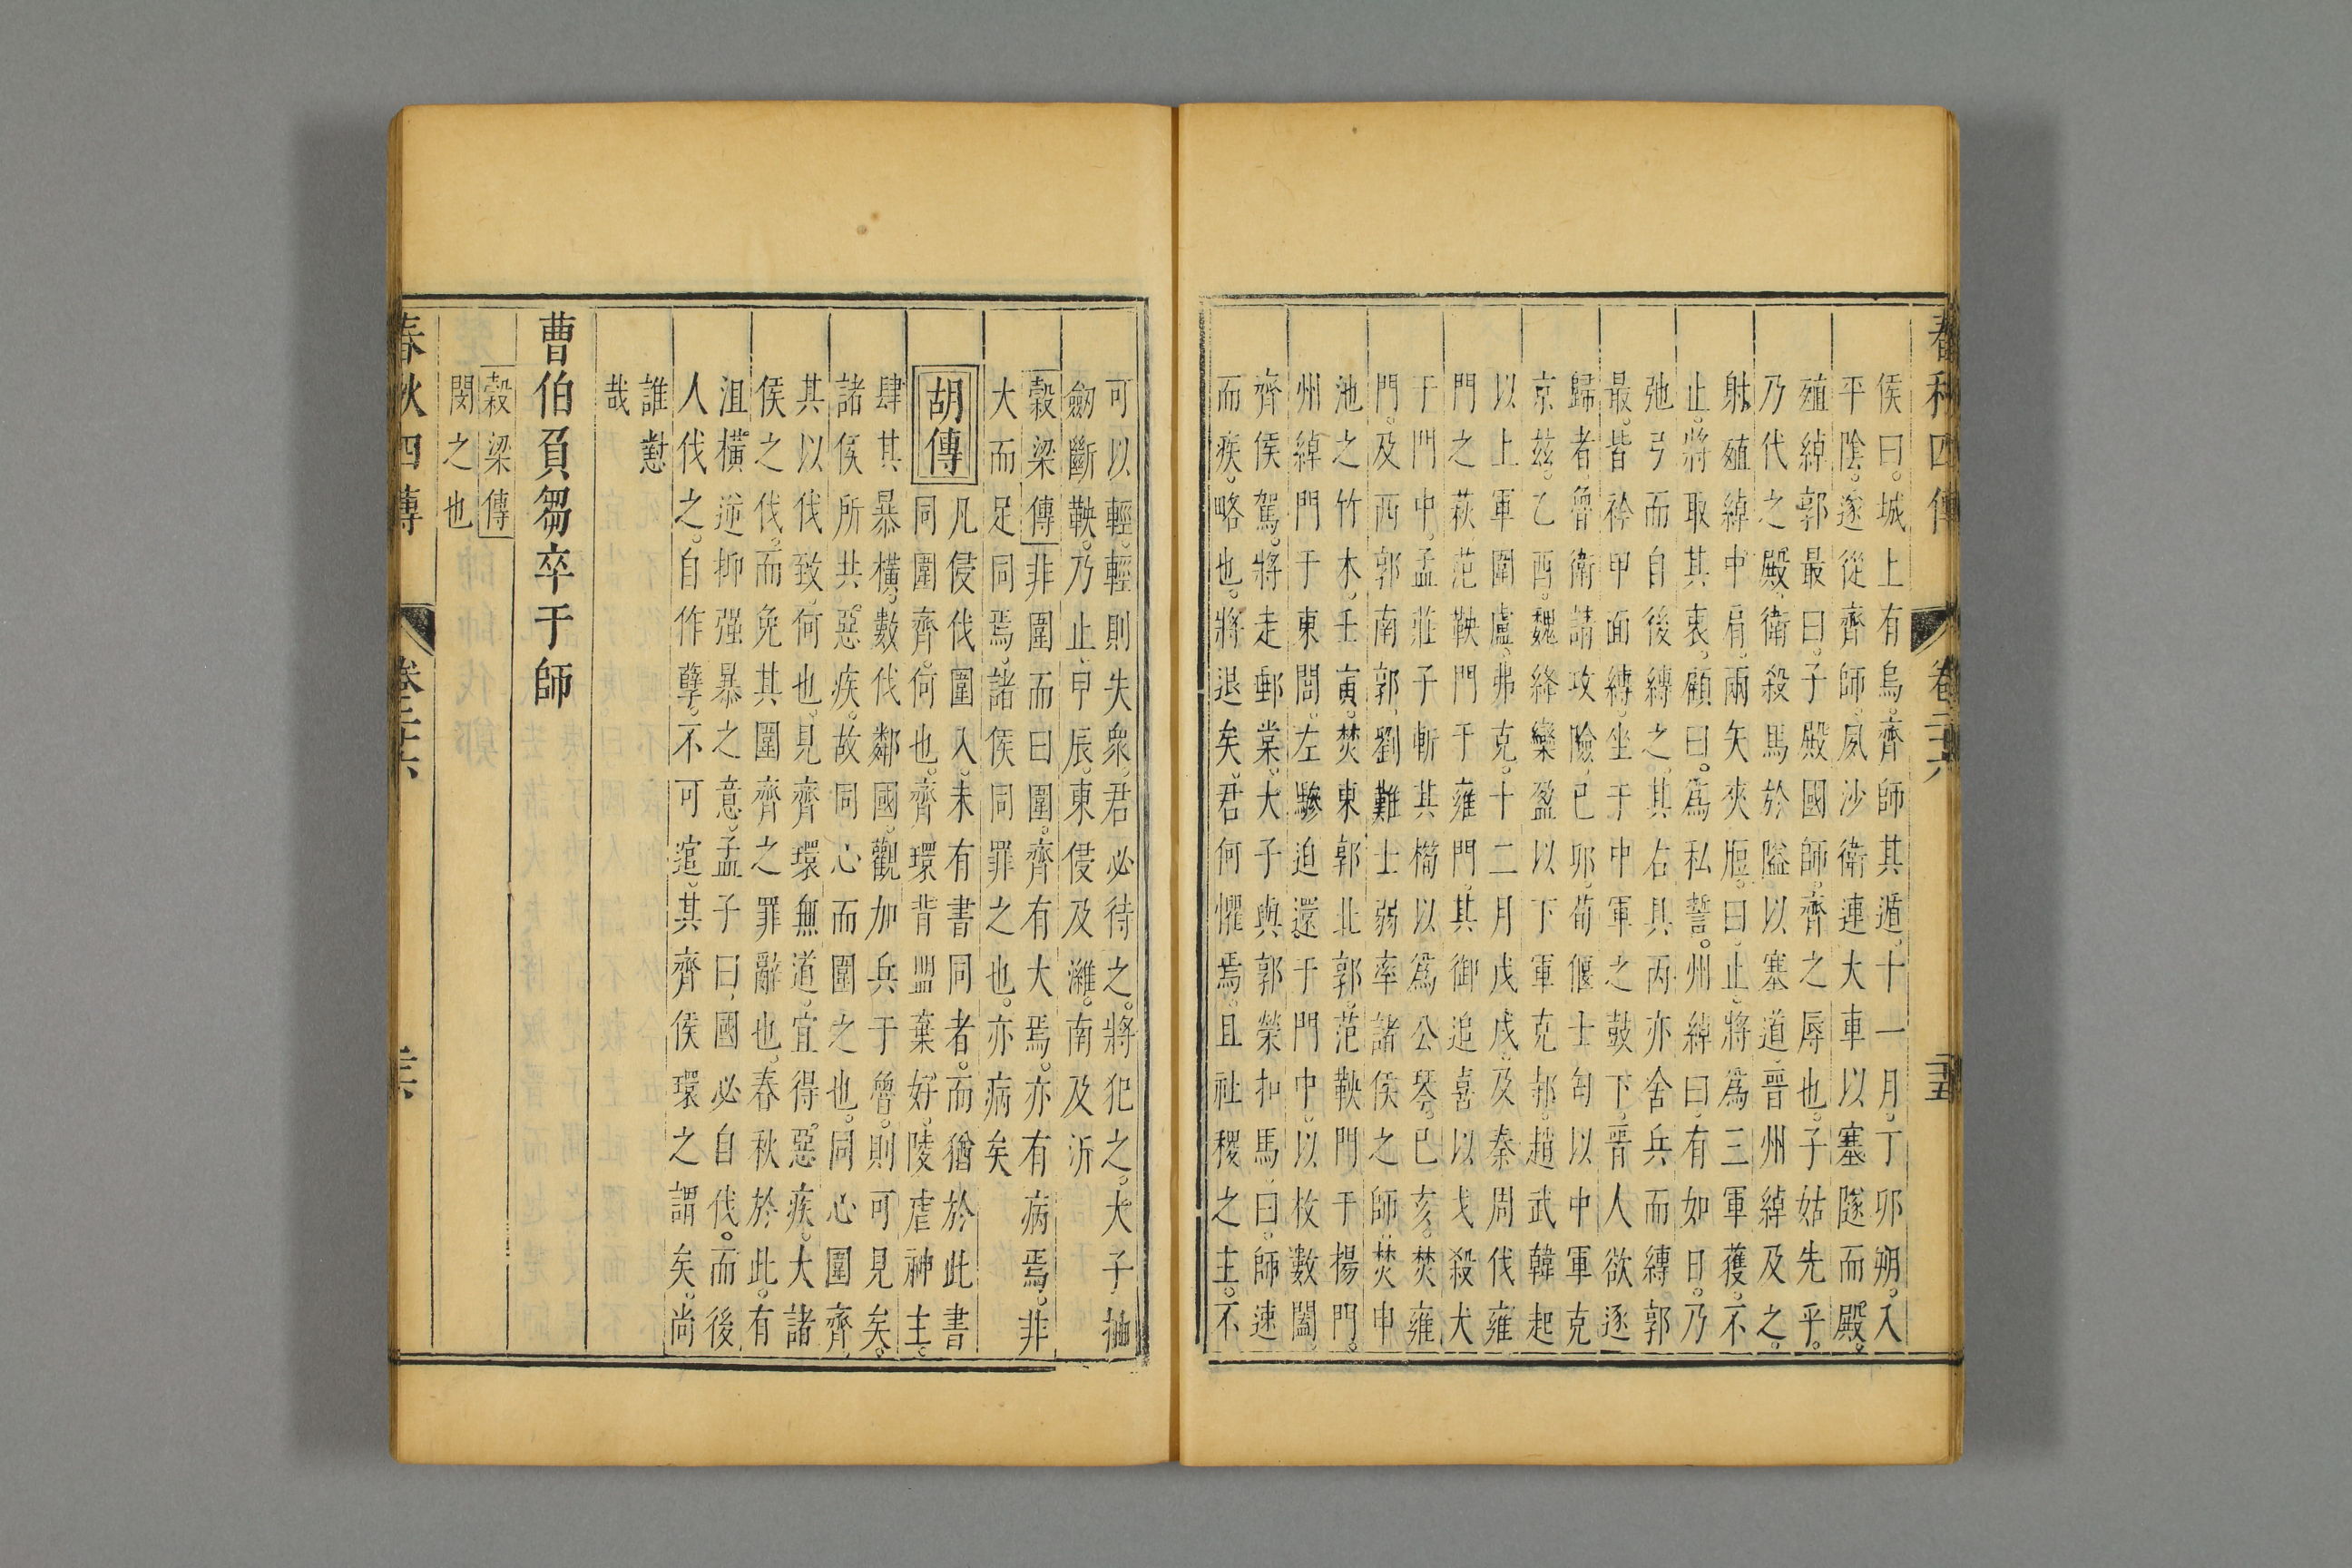 春秋四傳 卷二十六 三十五
侯曰。城上有烏。齊師其遁。十一月。丁卯朔。入
平陰。遂從齊師。夙沙衛連大車以塞隧而殿。
殖綽郭最曰。子殿國師。齊之辱也。子姑先乎。
乃代之殿。衛殺馬於隘。以塞道。晉州綽及之。
射殖綽。中肩。兩矢夾脰。曰。止。將為三軍獲。不
止。將取其衷。顧曰。為私誓。州綽曰。有如日。乃
弛弓而自後縛之。其右具丙亦舍兵而縛郭
最。皆衿甲面縛。坐于中軍之鼓下。晉人欲逐
歸者。魯衛請攻險。己卯。荀偃士匄以中軍克
京茲。乙酉。魏絳欒盈以下軍克邿。趙武韓起
以上軍圍盧。弗克。十二月戊戌。及秦周伐雍
門之萩。范鞅門于雍門。其御追喜以戈殺犬
于門中。孟莊子斬其橁以為公琴。己亥。焚雍
門。及西郭南郭。劉難士弱率諸侯之師。焚申
池之竹木。壬寅。焚東郭北郭。范鞅門于揚門。
州綽門于東閭。左驂迫還于門中。以枚數闔。
齊侯駕。將走郵棠。大子與郭榮扣馬。曰。師速
而疾。略也。將退矣。君何懼焉。且社稷之主。不
可以輕。輕則失衆。君必待之。將犯之。大子抽
劒斷鞅。乃止。甲辰。東侵及濰。南及沂
穀梁傳 非圍而曰圍。齊有大焉。亦有病焉。非
大而足同焉。諸侯同罪之也。亦病矣
胡傳 凡侵伐圍入。未有書同者。而猶於此書
同圍齊。何也。齊環背盟棄好。陵虐神主。
肆其暴橫。數伐鄰國。觀加兵于魯。則可見矣。
諸侯所共惡疾。故同心而圍之也。同心圍齊。
其以伐致。何也。見齊環無道。宜得惡疾。大諸
侯之伐。而免其圍齊之罪辭也。春秋於此。有
沮橫逆抑强暴之意。孟子曰。國必自伐。而後
人伐之。自作孽。不可逭。其齊侯環之謂矣。尚
誰懟
哉
曹伯負芻卒于師
穀梁傳
閔之也
春秋四傳 卷二十六 三十六